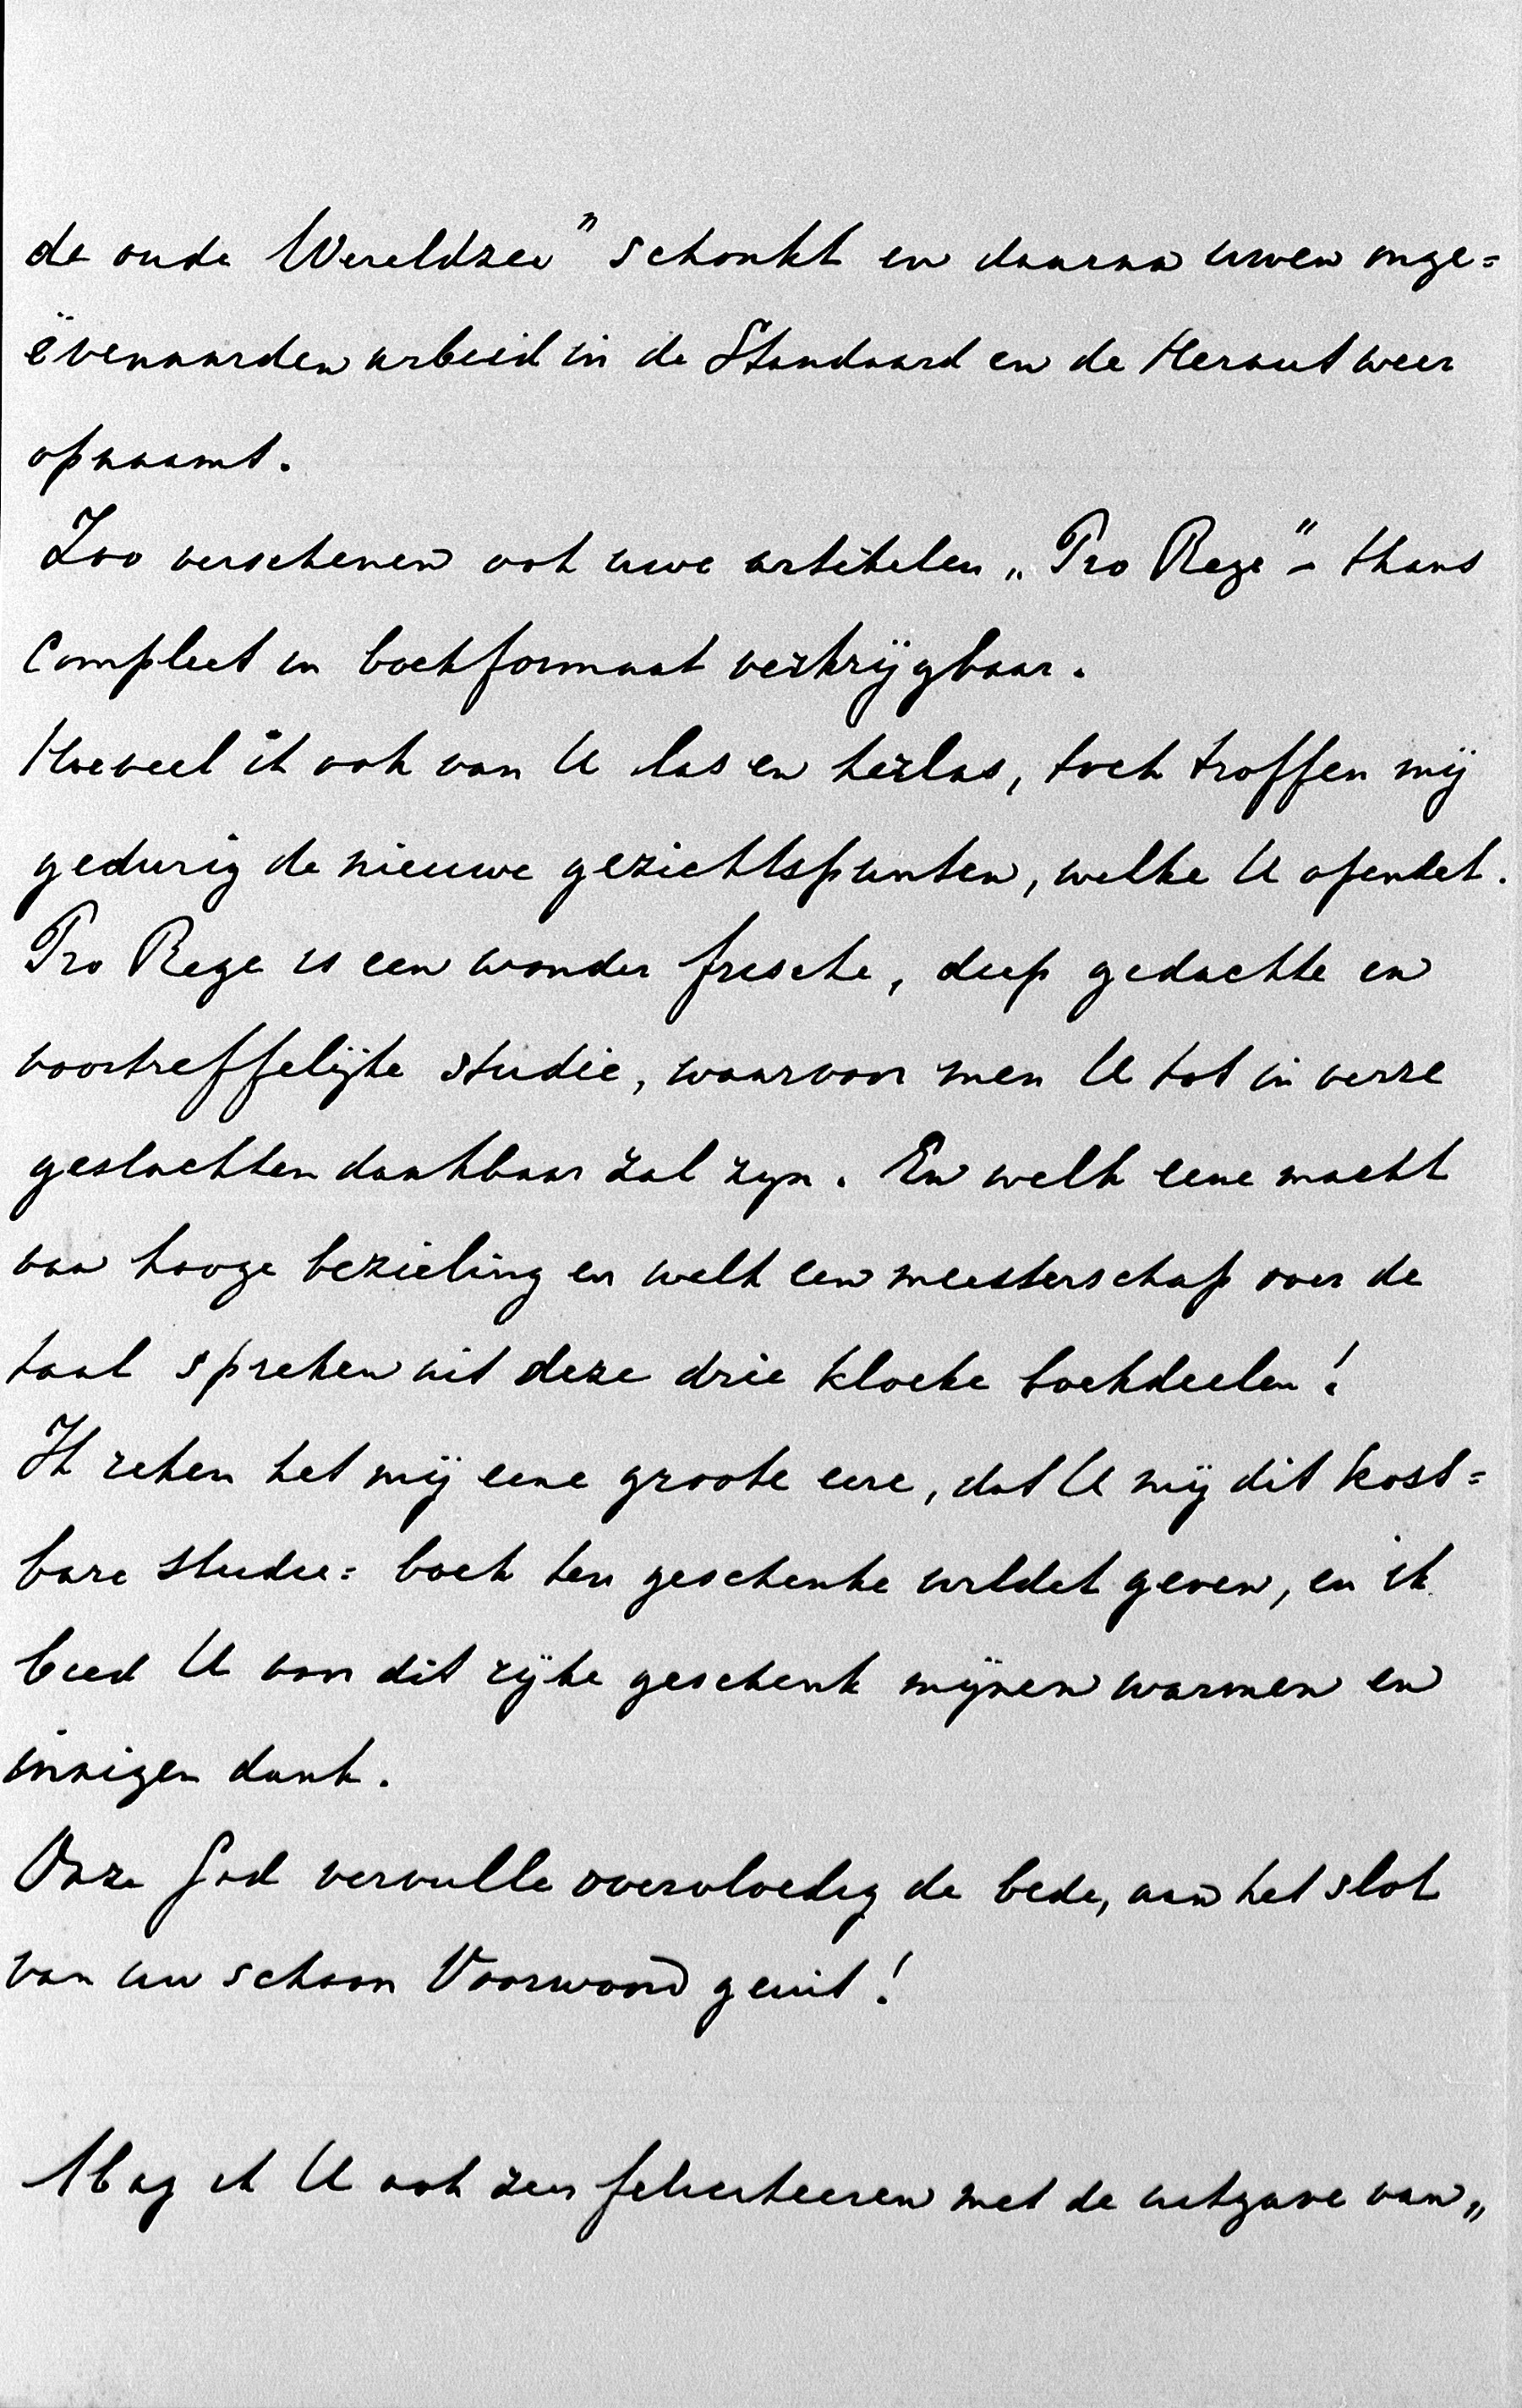 de oude Wereldzee" schonkt en daarna uwen onge=
ëvenaarden arbeid in de Standaard en de Heraut weer
opnaamt.
Zoo verschenen ook uwe artikelen „Pro Rege" – thans
compleet in boekformaat verkrijgbaar.
Hoeveel ik ook van U las en herlas, toch troffen mij
gedurig de nieuwe gezichtspunten, welke U opendet.
Pro Rege is een wonder frissche, diep gedachte en
voortreffelijke studie, waarvoor men U tot in verre
geslachten dankbaar zal zijn. En welk eene macht
van hooge bezieling en welk een meesterschap over de
taal spreken uit deze drie kloeke boekdeelen!
Ik reken het mij eene groote eere, dat U mij dit kost=
bare studie= boek ten geschenke wildet geven, en ik
bied U voor dit rijke geschenk mijnen warmen en
innigen dank.
Onze God vervulle overvloedig de bede, aan het slot
van uw schoon Voorwoord geuit!
Mag ik U ook zeer feliciteeren met de uitgave van „